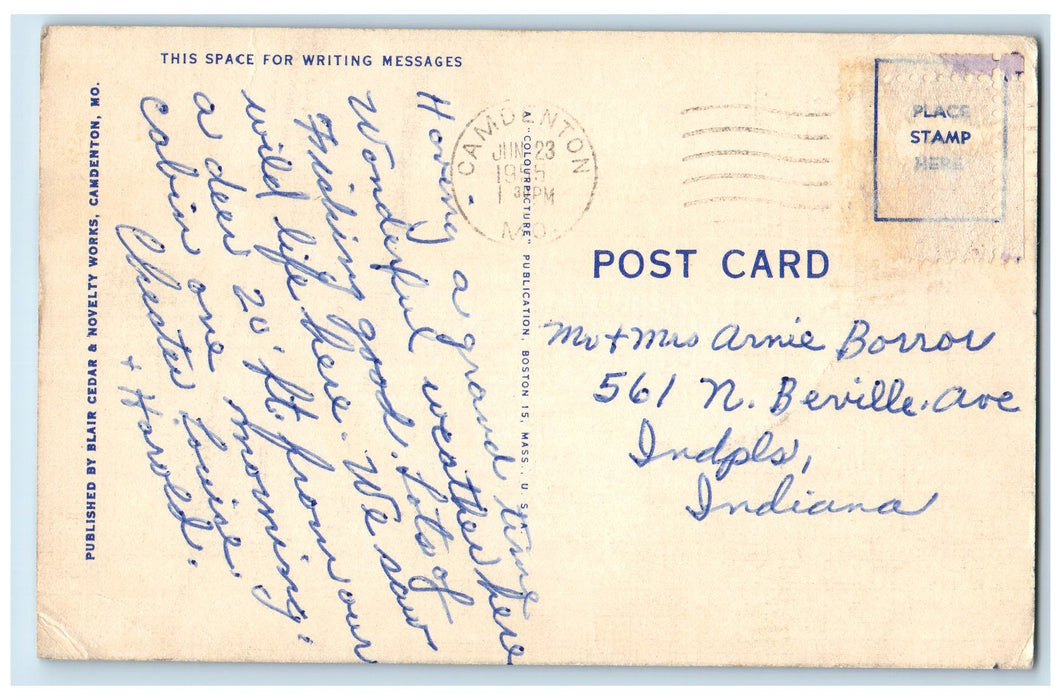 THIS SPACE FOR WRITING MESSAGES
PUBLISHED BY BLAIR CEDAR & NOVELTY WORKS, CAMDENTON, MO.
Having a grand time
Wonderful weather here
Fishing good. Lots of
wild life here. We saw
a deer 20' ft. from our
cabin one morning.
Louise
Chester
+ Harold.
A "COLOURPICTURE" PUBLICATION, BOSTON 15, MASS., U.S.A.
CAMDENTON
JUN 23
1955
1 30 PM
MO.
PLACE
STAMP
HERE
POST CARD
Mr + Mrs Arnie Borror
561 N. Beville. Ave
Indpls,
Indiana